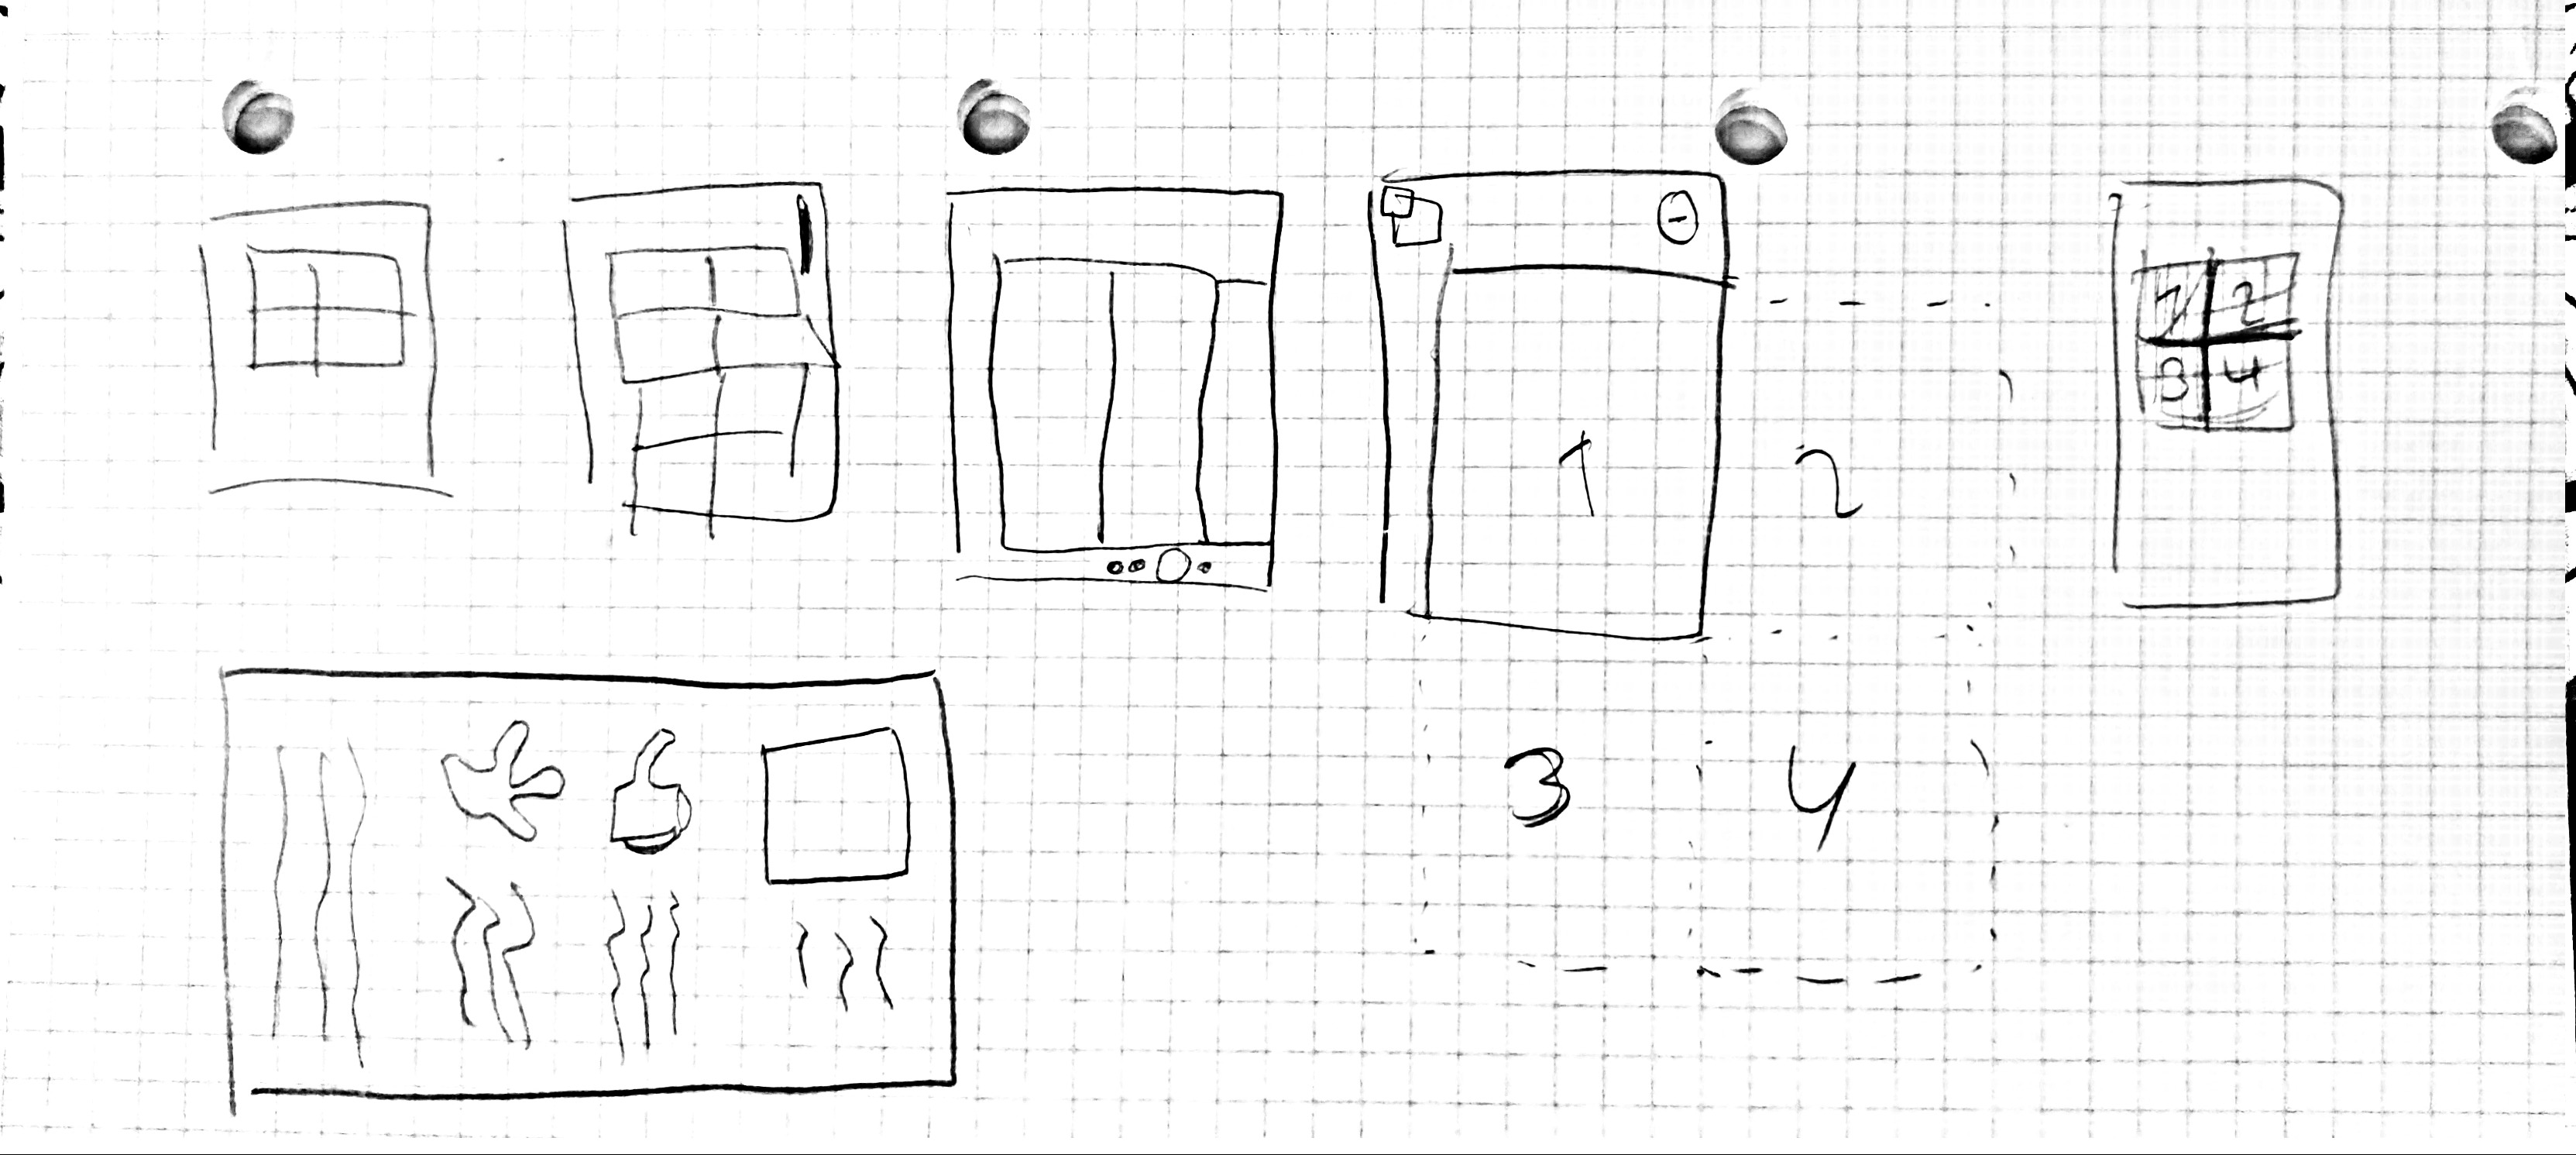 1 2
3 4
1 2
3 4